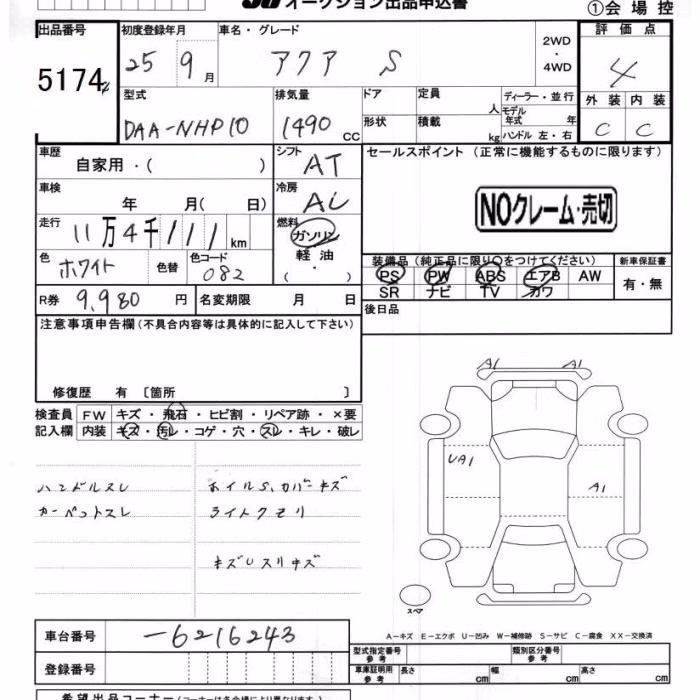 オークション出品申込書
①会場控
出品番号 初度登録年月 車名・グレード 評価点
5174 25 9月 アクア S 2WD・4WD 4
型式 排気量 ドア 定員 人 ディーラー・並行 外装 内装
DAA-NHP10 1490 CC 形状 積載 kg モデル年式 年 ハンドル 左・右 C C
車歴 自家用・( ) シフト AT セールスポイント (正常に機能するものに限ります)
車検 年 月( 日) 冷房 AC
NOクレーム・売切
走行 11万4千111km 燃料 ガソリン・軽油・( )
色 ホワイト 色替 色コード 082
装備品 (純正品に限り○をつけてください) 新車保証書
PS PW ABS エアB AW 有・無
SR ナビ TV カワ
R券 9,980円 名変期限 月 日
後日品
注意事項申告欄 (不具合内容等は具体的に記入して下さい)
修復歴 有 〔箇所 〕
検査員記入欄 FW キズ・飛石・ヒビ割・リペア跡・×要
内装 キズ・汚レ・コゲ・穴・スレ・キレ・破レ
A1 A1
UA1 A1
ハンドルスレ ホイルS,カバーキズ
カーペットスレ ライトクモリ
キズUスリキズ
スペア
A-キズ E-エクボ U-凹み W-補修跡 S-サビ C-腐食 XX-交換済
車台番号 -6216243
型式指定番号 参考 類別区分番号 参考
登録番号
車庫証明用 参考 長さ cm 幅 cm 高さ cm
希望出品コーナー(コーナーは各会場により異なります)